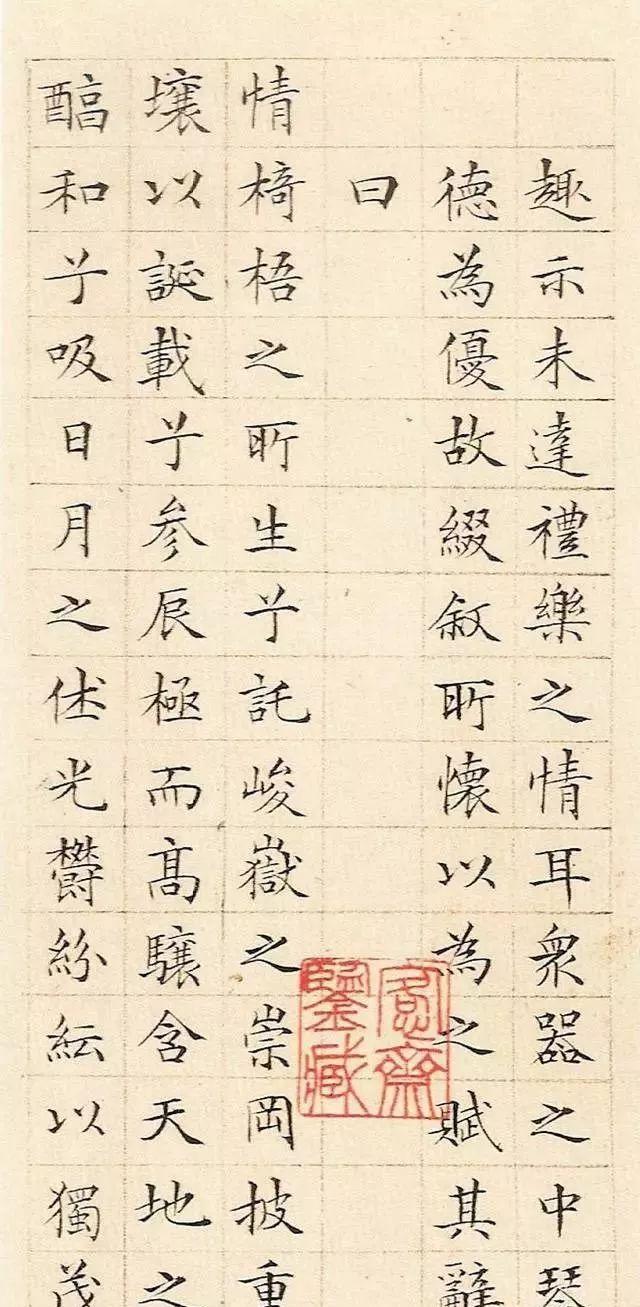 趣示未達禮樂之情耳衆器之中琴
德為優故綴叙所懷以為之賦其辭
曰
情椅梧之所生兮託峻嶽之崇岡披重
壤以誕載兮参辰極而髙驤含天地之
醕和兮吸日月之休光鬱紛紜以獨茂
愙齋鑒藏